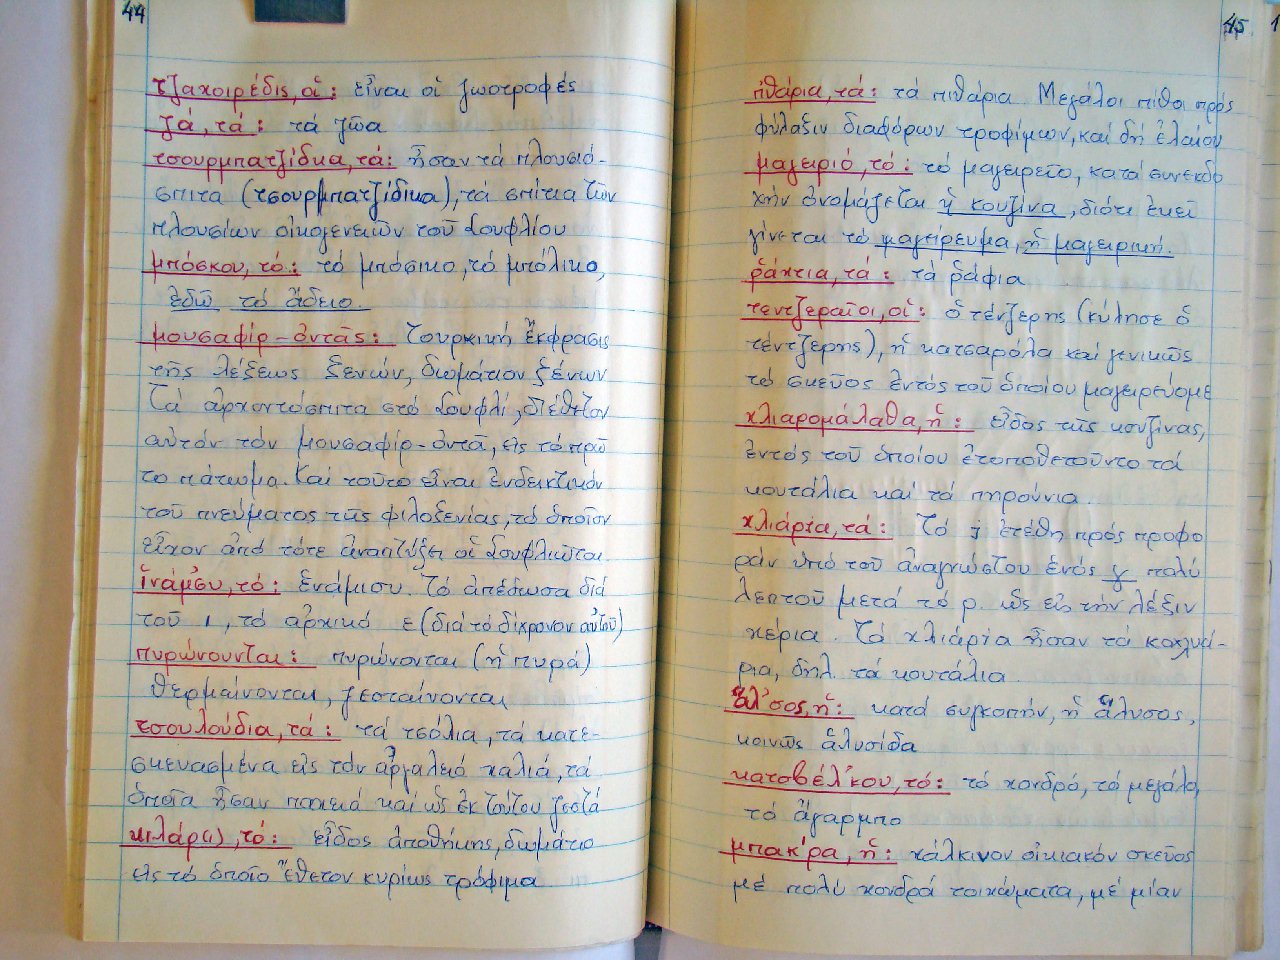 44
τζαχοιρέδις, οἱ: εἶναι οἱ ζωοτροφές
ζά, τά: τά ζῶα
τσουρμπατζίδκα, τά: ἦσαν τά πλουσιό-
σπιτα (τσουρμπατζίδικα), τά σπίτια τῶν
πλουσίων οἰκογενειῶν τοῦ Σουφλίου
μπόσκου, τό: τό μπόσικο, τό μπόλικο,
ἐδῶ τό ἄδειο
μουσαφίρ-ὀντᾶς: Τουρκική ἔκφρασις
τῆς λέξεως ξενών, δωμάτιον ξένων
Τά ἀρχοντόσπιτα στό Σουφλί, διέθετον
αὐτόν τόν μουσαφίρ-ὀντᾶ, εἰς τό πρῶ
το πάτωμα. Καί τοῦτο εἶναι ἐνδεικτικόν
τοῦ πνεύματος τῆς φιλοξενίας, τό ὁποῖον
εἶχον ἀπό τότε ἀναπτύξει οἱ Σουφλιῶται.
ἰνάμ'συ, τό: ἐνάμισυ. Τό ἀπέδωσα διά
τοῦ ι, τό ἀρχικό ε (διά τό δίχρονον αὐτοῦ)
πυρώνουνται: πυρώνονται (ἡ πυρά)
θερμαίνονται, ζεσταίνονται
τσουλούδια, τά: τά τσόλια, τά κατε-
σκευασμένα εἰς τόν ἀργαλειό χαλιά, τά
ὁποῖα ἦσαν παχειά καί ὡς ἐκ τούτου ζεστά
κιλάρ(ι), τό: εἶδος ἀποθήκης, δωμάτιο
εἰς τό ὁποῖο ἔθετον κυρίως τρόφιμα
45
πθάρια, τά: τά πιθάρια. Μεγάλοι πίθοι πρός
φύλαξιν διαφόρων τροφίμων, καί δή ἐλαίου
μαγειριό, τό: τό μαγειρεῖο, κατά συνεκδο
χήν ὀνομάζεται ἡ κουζίνα, διότι ἐκεῖ
γίνεται τό μαγείρευμα, ἡ μαγειρική.
ῥάχτια, τά: τά ῥάφια
τεντζεραῖοι, οἱ: ὁ τέντζερης (κύλησε ὁ
τέντζερης), ἡ κατσαρόλα καί γενικῶς
τό σκεῦος ἐντός τοῦ ὁποίου μαγειρεύομε
χλιαρομάλαθα, ἡ: εἶδος τῆς κουζίνας,
ἐντός τοῦ ὁποίου ἐτοποθετοῦντο τά
κουτάλια καί τά πηρούνια.
χλιάρjα, τά: Τό j ἐτέθη πρός προφο
ράν ὑπό τοῦ ἀναγνώστου ἑνός γ πολύ
λεπτοῦ μετά τό ρ. ὡς εἰς τήν λέξιν
χέρια. Τά χλιάρjα ἦσαν τά κοχλιά-
ρια, δηλ. τά κουτάλια
ἅλ'σος, ἡ: κατά συγκοπήν, ἡ ἅλυσος,
κοινῶς ἁλυσίδα
κατσβέλ'κου, τό: τό χονδρό, τό μεγάλο,
τό ἄγαρμπο
μπακ'ρα, ἡ: χάλκινον οἰκιακόν σκεῦος
μέ πολύ χονδρά τοιχώματα, μέ μίαν